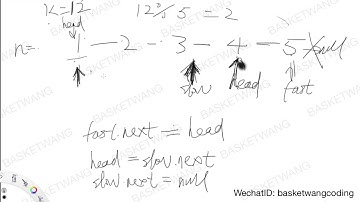 k=12   12%5=2
head
n= 1 - 2 - 3 - 4 - 5 null
slow   head   fast
fast.next = head
head = slow.next
slow.next = null
WechatID: basketwangcoding
BASKETWANG